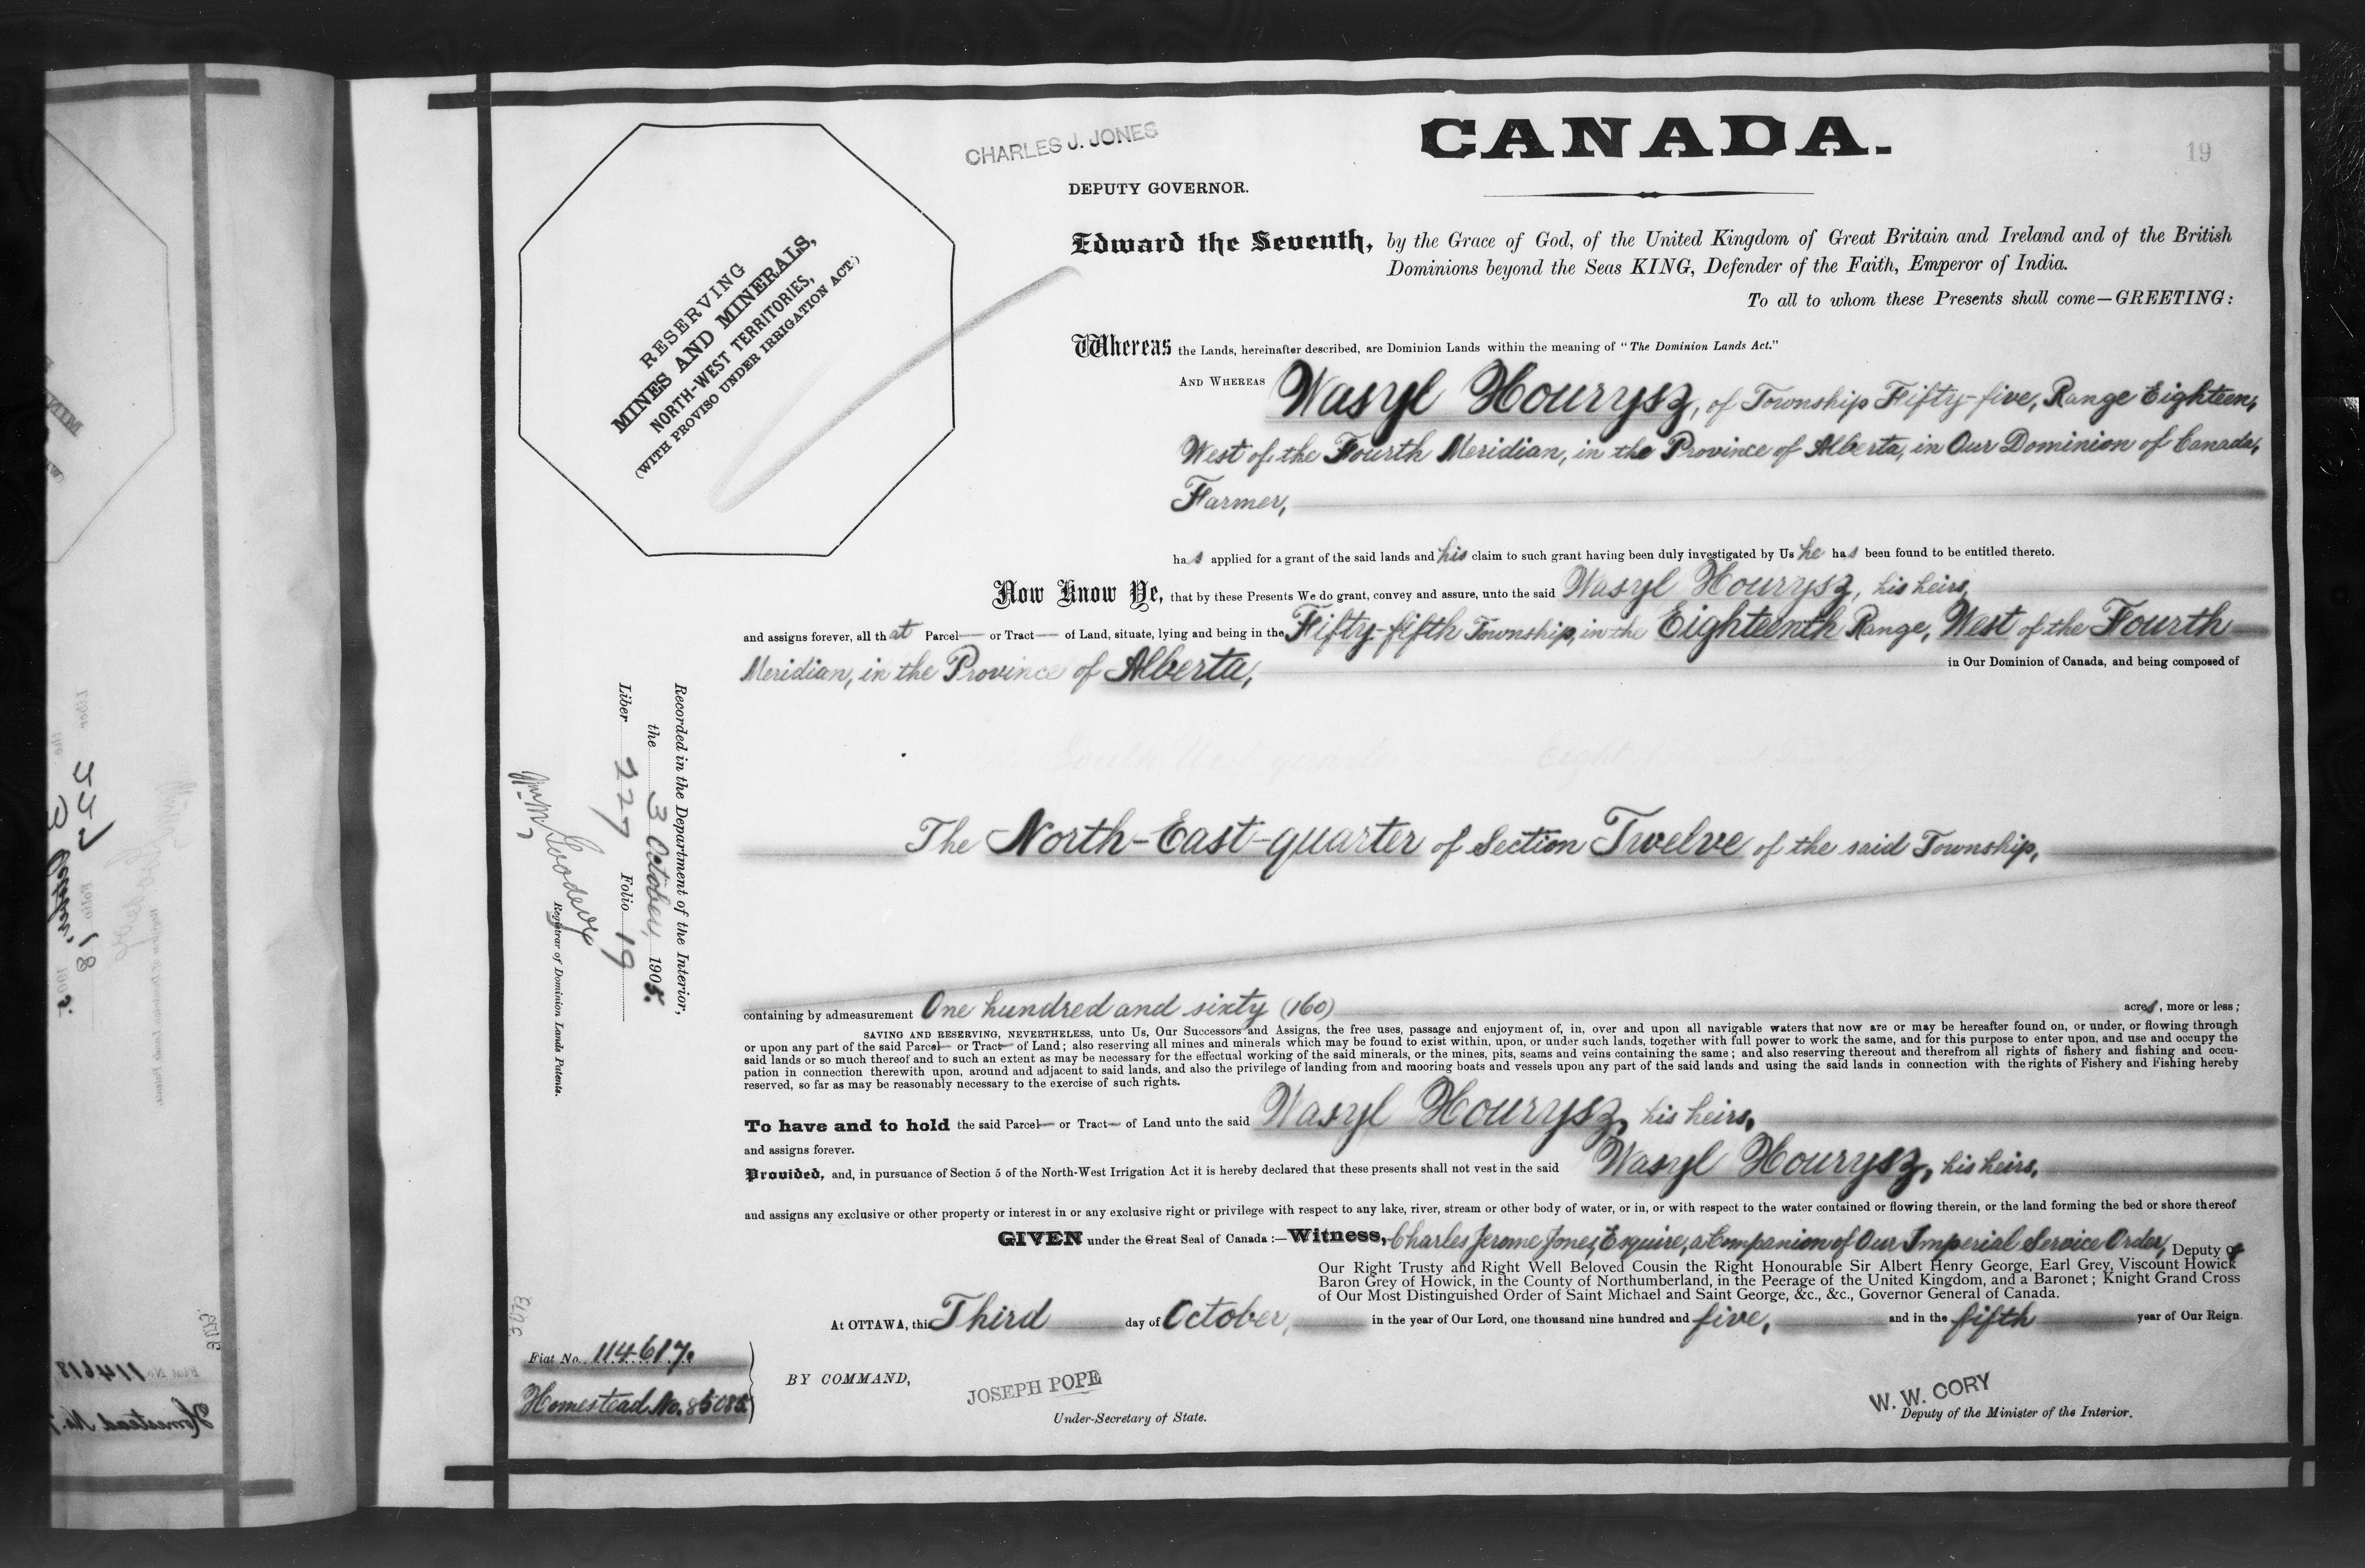 CHARLES J. JONES
CANADA.
19
DEPUTY GOVERNOR.
RESERVING
MINES AND MINERALS,
NORTH-WEST TERRITORIES,
(WITH PROVISO UNDER IRRIGATION ACT.)
Edward the Seventh, by the Grace of God, of the United Kingdom of Great Britain and Ireland and of the British
Dominions beyond the Seas KING, Defender of the Faith, Emperor of India.
To all to whom these Presents shall come—GREETING:
Whereas the Lands, hereinafter described, are Dominion Lands within the meaning of "The Dominion Lands Act."
AND WHEREAS Wasyl Hourysz, of Township Fifty-five, Range Eighteen,
West of the Fourth Meridian, in the Province of Alberta, in Our Dominion of Canada,
Farmer,
has applied for a grant of the said lands and his claim to such grant having been duly investigated by Us he has been found to be entitled thereto.
Now Know Ye, that by these Presents We do grant, convey and assure, unto the said Wasyl Hourysz, his heirs,
and assigns forever, all that Parcel— or Tract— of Land, situate, lying and being in the Fifty-fifth Township, in the Eighteenth Range, West of the Fourth
Meridian, in the Province of Alberta, in Our Dominion of Canada, and being composed of
The North-East-quarter of Section Twelve of the said Township,
Recorded in the Department of the Interior,
the 3 October, 1905.
Liber 227 Folio 19
Registrar of Dominion Lands Patents.
containing by admeasurement One hundred and sixty (160) acres, more or less;
SAVING AND RESERVING, NEVERTHELESS, unto Us, Our Successors and Assigns, the free uses, passage and enjoyment of, in, over and upon all navigable waters that now are or may be hereafter found on, or under, or flowing through
or upon any part of the said Parcel— or Tract— of Land; also reserving all mines and minerals which may be found to exist within, upon, or under such lands, together with full power to work the same, and for this purpose to enter upon, and use and occupy the
said lands or so much thereof and to such an extent as may be necessary for the effectual working of the said minerals, or the mines, pits, seams and veins containing the same; and also reserving thereout and therefrom all rights of fishery and fishing and occu-
pation in connection therewith upon, around and adjacent to said lands, and also the privilege of landing from and mooring boats and vessels upon any part of the said lands and using the said lands in connection with the rights of Fishery and Fishing hereby
reserved, so far as may be reasonably necessary to the exercise of such rights.
To have and to hold the said Parcel— or Tract— of Land unto the said Wasyl Hourysz, his heirs,
and assigns forever.
Provided, and, in pursuance of Section 5 of the North-West Irrigation Act it is hereby declared that these presents shall not vest in the said Wasyl Hourysz, his heirs,
and assigns any exclusive or other property or interest in or any exclusive right or privilege with respect to any lake, river, stream or other body of water, or in, or with respect to the water contained or flowing therein, or the land forming the bed or shore thereof
GIVEN under the Great Seal of Canada:—Witness, Charles Jerome Jones, Esquire, a Companion of Our Imperial Service Order, Deputy of
Our Right Trusty and Right Well Beloved Cousin the Right Honourable Sir Albert Henry George, Earl Grey, Viscount Howick
Baron Grey of Howick, in the County of Northumberland, in the Peerage of the United Kingdom, and a Baronet; Knight Grand Cross
of Our Most Distinguished Order of Saint Michael and Saint George, &c., &c., Governor General of Canada.
At OTTAWA, this Third day of October, in the year of Our Lord, one thousand nine hundred and five, and in the fifth year of Our Reign.
Fiat No. 114617.
Homestead No. 85085
BY COMMAND,
JOSEPH POPE
Under-Secretary of State.
W. W. CORY
Deputy of the Minister of the Interior.